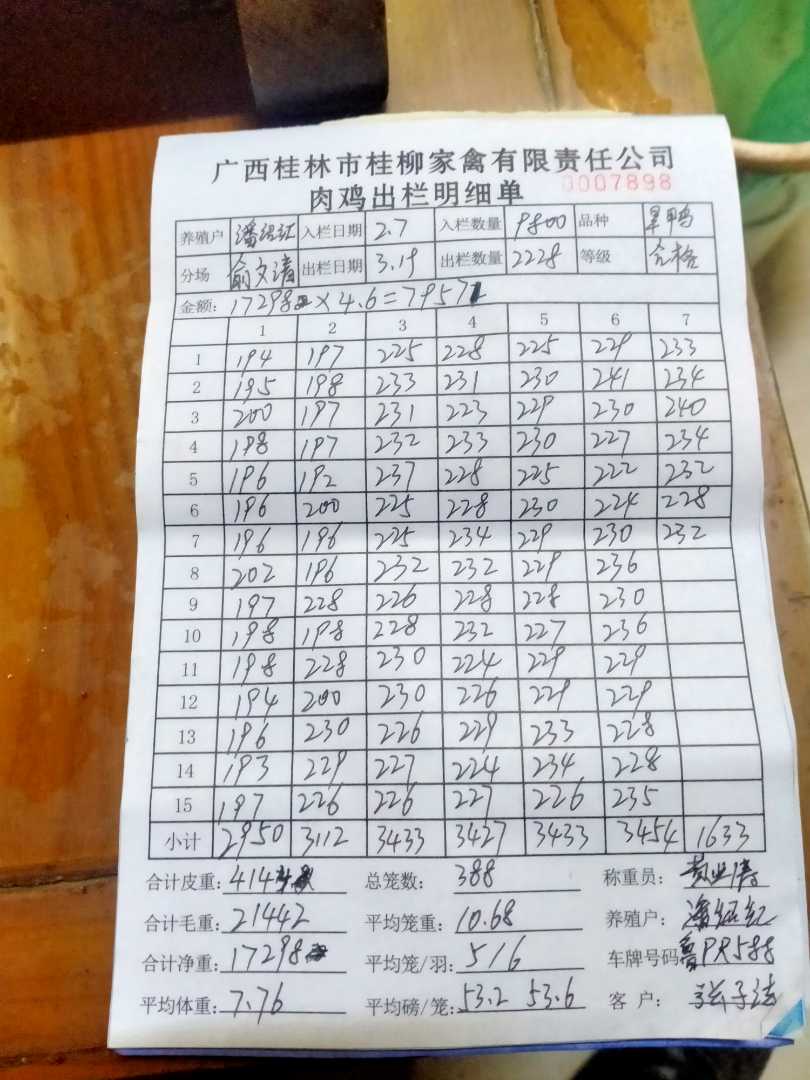 广西桂林市桂柳家禽有限责任公司
肉鸡出栏明细单 0007898
养殖户 入栏日期 2.7 入栏数量 9800 品种 旱甲鸭
分场 俞文清 出栏日期 3.19 出栏数量 2228 等级 合格
金额: 17298 × 4.6 = 79571
1 2 3 4 5 6 7
1 194 197 225 228 225 229 233
2 195 198 233 231 230 241 234
3 200 197 231 223 229 230 240
4 198 197 232 233 230 227 234
5 196 192 237 228 225 222 232
6 196 200 225 228 230 224 228
7 196 196 225 234 229 230 232
8 202 196 232 232 229 236
9 197 228 226 228 228 230
10 198 198 228 232 227 236
11 198 228 230 224 229 229
12 194 200 230 226 229 229
13 196 230 226 229 233 228
14 193 229 227 224 234 228
15 197 226 226 227 226 235
小计 2950 3112 3433 3427 3433 3454 1633
合计皮重: 414 总笼数: 388 称重员:
合计毛重: 21442 平均笼重: 10.68 养殖户:
合计净重: 17298 平均笼/羽: 5/6 车牌号码 鲁PR588
平均体重: 7.76 平均磅/笼: 53.2 53.6 客户: